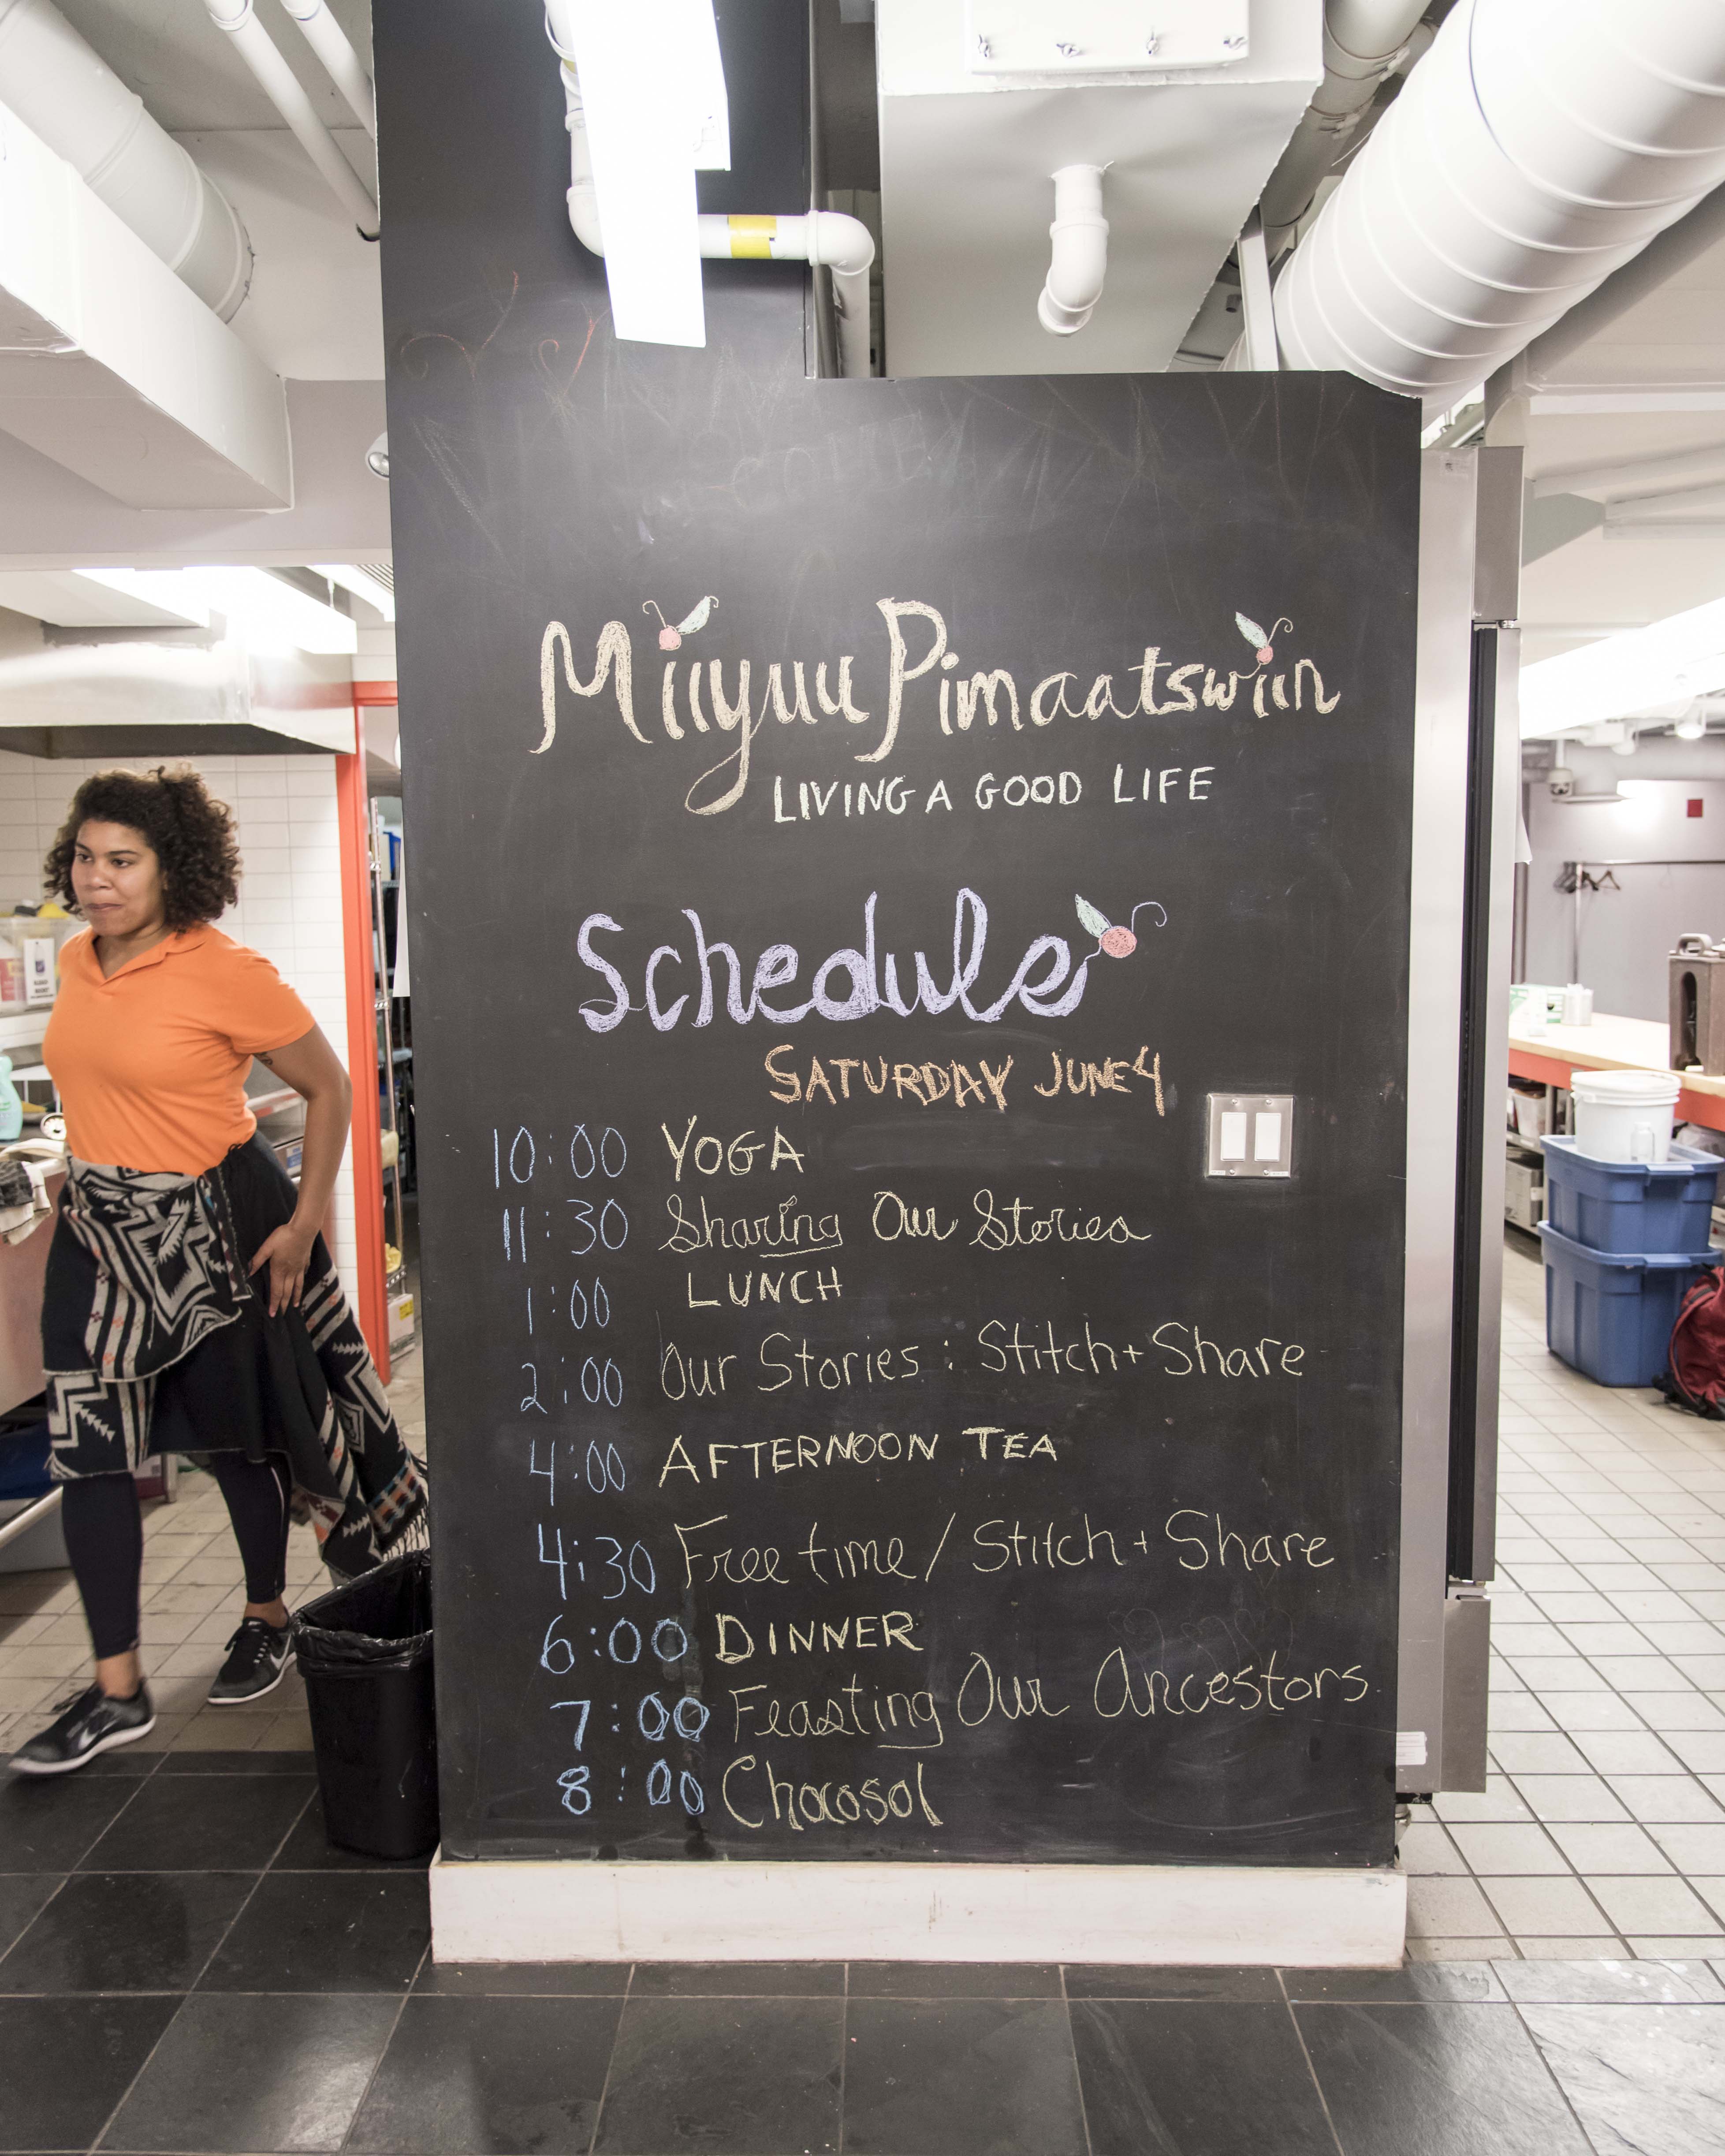 Miiyuu Pimaatswiin
LIVING A GOOD LIFE
Schedule
SATURDAY JUNE 4
10:00 YOGA
11:30 Sharing Our Stories
1:00 LUNCH
2:00 Our Stories: Stitch + Share
4:00 AFTERNOON TEA
4:30 Free time / Stitch + Share
6:00 DINNER
7:00 Feasting Our Ancestors
8:00 Chocosol